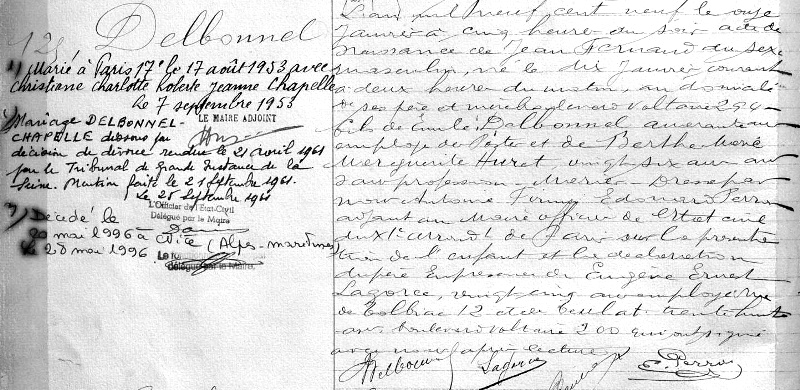 125
Delbonnel
1) Marié à Paris 17e le 17 août 1953 avec
Christiane Charlotte Roberte Jeanne Chapelle
Le 7 septembre 1953
LE MAIRE ADJOINT
2) Mariage DELBONNEL-
CHAPELLE dissous par
décision de divorce rendue le 21 avril 1961
par le Tribunal de Grande Instance de la
Seine. Mention faite le 21 Septembre 1961.
Le 25 Septembre 1961
L'Officier de l'Etat-Civil
Délégué par le Maire
3) Décédé le
20 mai 1996 à Nice (Alpes-maritimes)
le 28 mai 1996
délégué par le Maire.
L'an mil neuf cent neuf le onze
Janvier à cinq heures du soir acte de
naissance de Jean Fernand du sexe
masculin, né le dix Janvier courant
à deux heures du matin, au domicile
de ses père et mère boulevard Voltaire 294
fils de Emile Delbonnel quarante ans
employé de Poste et de Berthe René
Marguerite Huret vingt six ans
sans profession Mariés Dressé par
nous Antoine Edouard Perron
adjoint au Maire officier de l'Etat civil
du XIe arrondt de Paris sur la présenta
tion de l'enfant et la déclaration
du père En présence de Eugène Ernest
Lagorce, vingt cinq ans employé rue
de Tolbiac 12 et de trente huit
ans boulevard Voltaire 200 qui ont signé
avec nous après lecture
Delbonnel Lagorce E. Perron